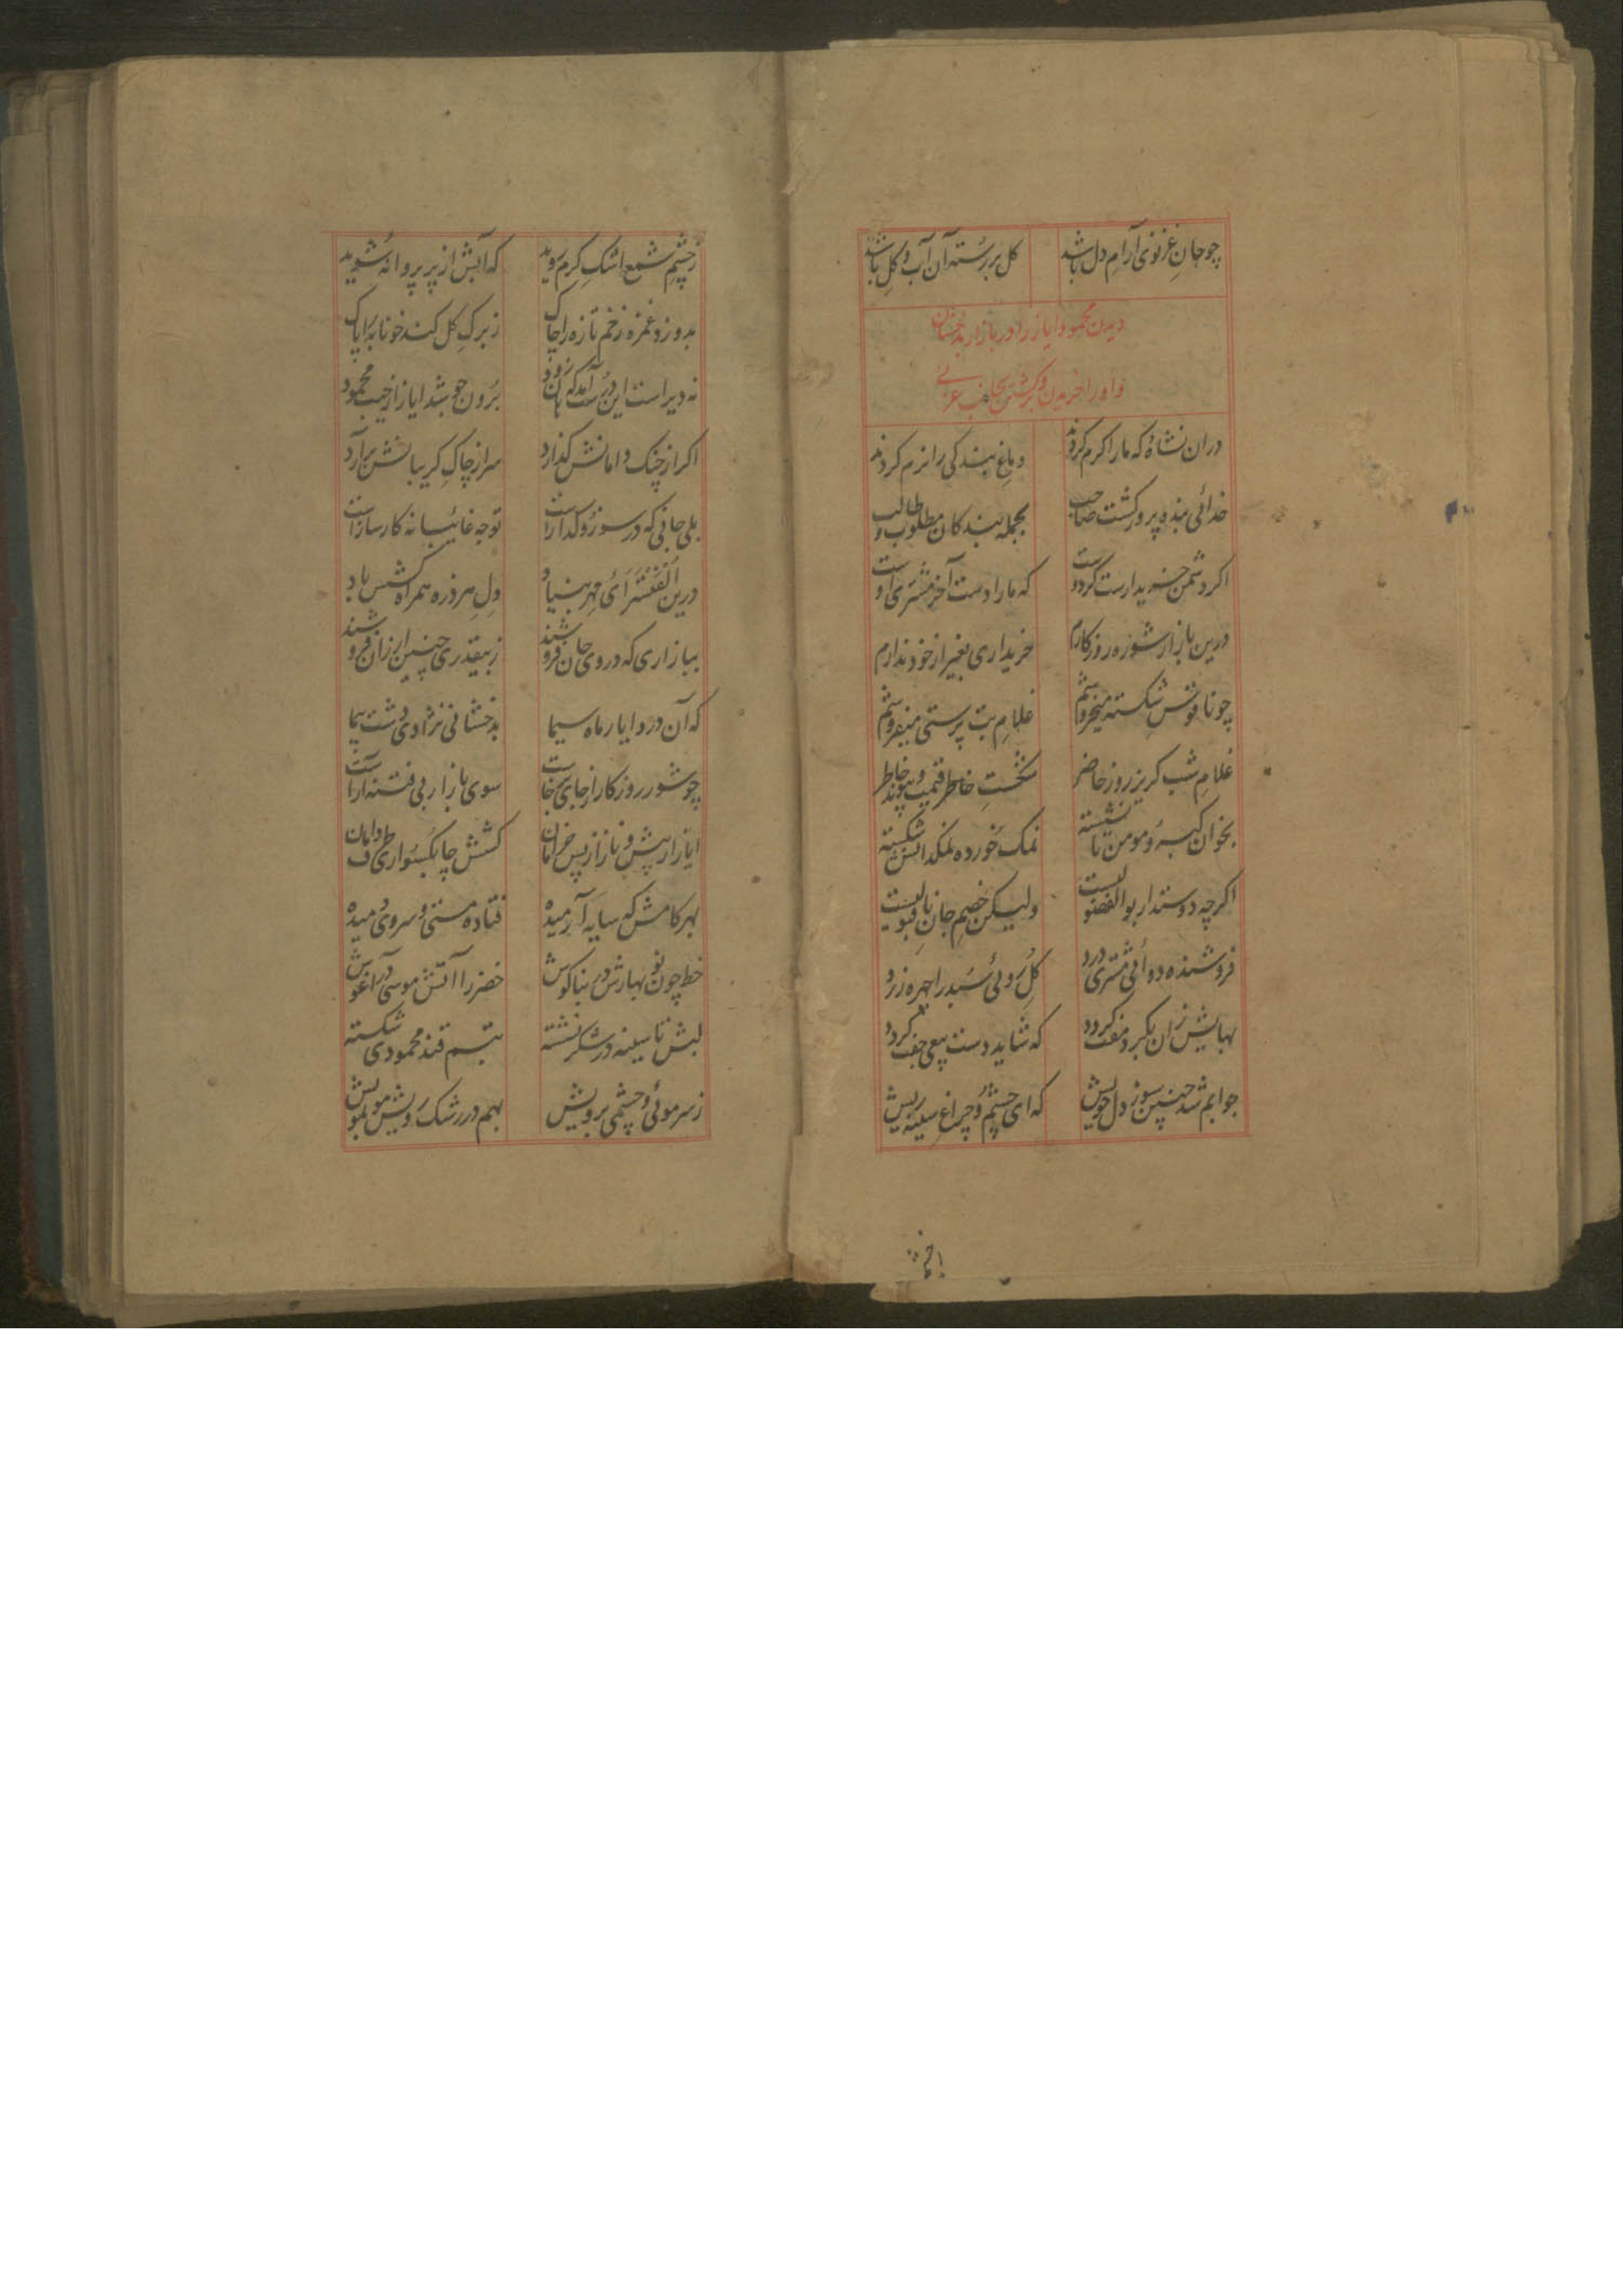 چو جان غزنوی آرام دل باشد
کل بر رسته آن آب و کل باشد
دیدن محمود ایاز را در بازار بدخشان
و او را خریدن و
دران نشاه که ما را کرم کردند
دماغ بندکی را نرم کردند
خدائی بنده پرور کشت صاحب
بجمله بندکان مطلوب و طالب
اکر دشمن خریدارست کر دوست
که ما را دست آخر مشتری اوست
درین بازار شوزه روزکارم
خریداری بغیر از خود ندارم
چو ناقوس شکسته میخروشم
غلام بت پرستی میفروشم
غلام شب کریز روز حاضر
شکست خاطر قیمت و پیوند خاطر
بخوان کبر و مومن نانشسته
نمک خورده نمکدانش شکسته
اکرچه دوستدار بوالفضولیست
ولیکن خصم جان ناقبولیست
فروشنده دوائی مشتری درد
کل روئی سبد را چهره زرد
بهایش زان نکیرد مفت کردد
که شاید دست بیعی جفت کردد
جوابم شد چنین سوز دل خویش
که ای چشم و چراغ سینه ریش
ز چشم شمع اشک کرم روید
که آبش از پر پروانه شوید
بدوزد غمزه زخم تازه را چاک
ز برک کل کند خونابه را پاک
نه دیر است این درست آمد که هان زود
برون جوشد ایاز از جیب محمود
اکر از چنک دامانش کذارد
سر از چاک کریبانش برآرد
بلی جانی که در سوز و کدازاست
توجه غائبانه کارسازاست
درین الفت سرای مهر بنیاد
دل هر ذره همراه کشش باد
ببازاری که در وی جان فروشند
ز بیقدری چنین ارزان فروشند
که آن درد ایاز ماه سیما
بدخشانی نژادی دشت پیما
چو شور روزکار از جای برخاست
سوی بازار بی فتنه آراست
ایاز از پیش و ناز از پس خرامان
کشش چابکسواری طرف دامان
بهر کامش که سایه آرمیده
فتاده مستی و سروی دمیده
خط چون نوبهارش در بناکوش
خضر را آتش موسی در آغوش
لبش تا سینه در شکر نشسته
تبسم قند محمودی شکسته
ز سر موئی و چشمی بر رویش
بهم در رشک رویش مو بمویش